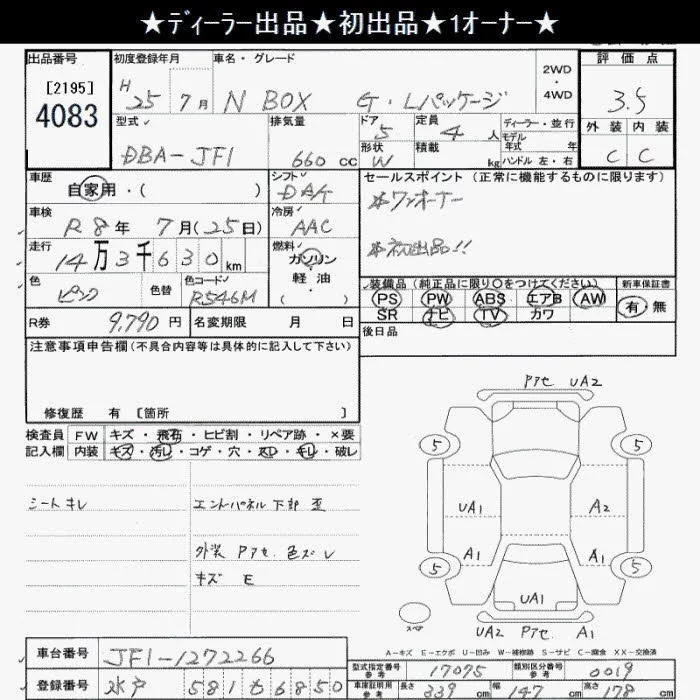 ★ディーラー出品★初出品★1オーナー★
出品番号 初度登録年月 車名・グレード 2WD・4WD 評価点
[2195]
4083
H 25年 7月 N BOX G・Lパッケージ 3.5
型式 排気量 ドア 5 定員 4人 ディーラー・並行 外装 内装
DBA-JF1 660cc 形状 W 積載 kg モデル年式 年式 ハンドル 左・右 C C
車歴 自家用・( ) シフト DAT セールスポイント(正常に機能するものに限ります)
車検 R8年 7月(25日) 冷房 AAC ☆ワンオーナー
走行 14万3千630km 燃料 ガソリン 軽油 ・( ) ☆初出品!!
色 ピンク 色替 色コード R546M 装備品(純正品に限り○をつけてください) 新車保証書
PS PW ABS エアB AW 有・無
SR ナビ TV カワ
R券 9,790円 名変期限 月 日 後日品
注意事項申告欄(不具合内容等は具体的に記入して下さい)
修復歴 有 [箇所 ]
検査員 FW キズ・飛石・ヒビ割・リペア跡・×要
記入欄 内装 キズ・汚レ・コゲ・穴・スレ・キレ・破レ
シートキレ エンドパネル下部 歪
外装 Pアセ 色ズレ
キズ E
Pアセ UA2
5 5
UA1 A2
A1 A1
5 5
UA1
スペア UA2 Pアセ A1
A-キズ E-エクボ U-凹み W-補修跡 S-サビ C-腐食 XX-交換済
車台番号 JF1-1272266 型式指定番号 参考 17075 類別区分番号 参考 0019
登録番号 水戸 581 も 6850 車庫証明用 参考 長さ 339cm 幅 147cm 高さ 178cm